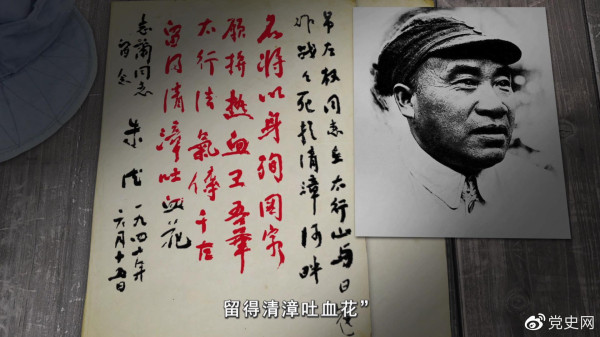 吊左权同志在太行山与日寇
作战々死於清漳河畔
名将以身殉国家
願拚热血卫吾華
太行浩氣傳千古
留得清漳吐血花
志蘭同志
留念
朱德 一九四二年
六月十五日
留得清漳吐血花”
党史网